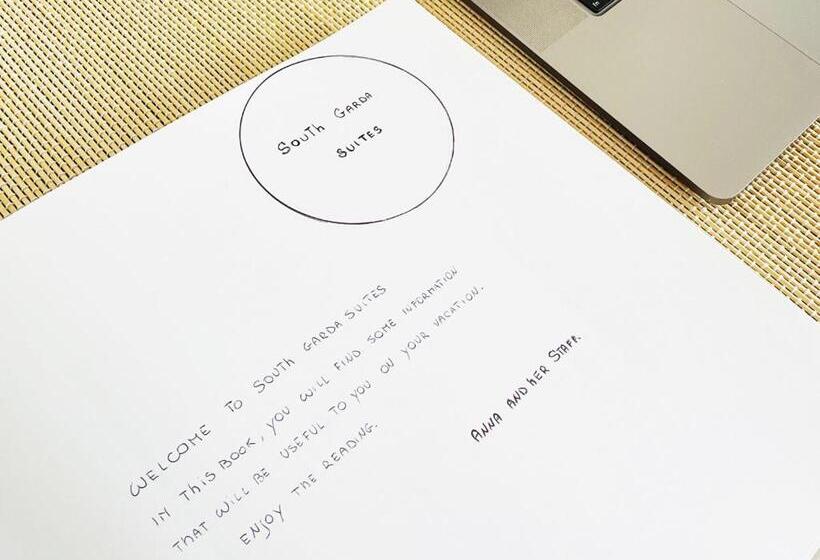 South GARDA
SUITES
WELCOME TO SOUTh GARDA SUITES
IN ThIS BOOK, YOU WILL FIND SOME INFORMATION
ThAT WILL BE USEFUL TO YOU ON YOUR VACATION.
ENJOY THE READING.
ANNA AND HER STAFF.